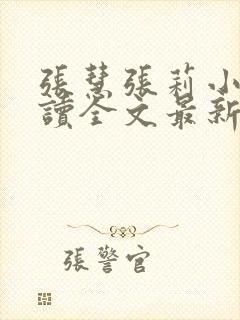 張慧張莉小
讀全文最新
張警官